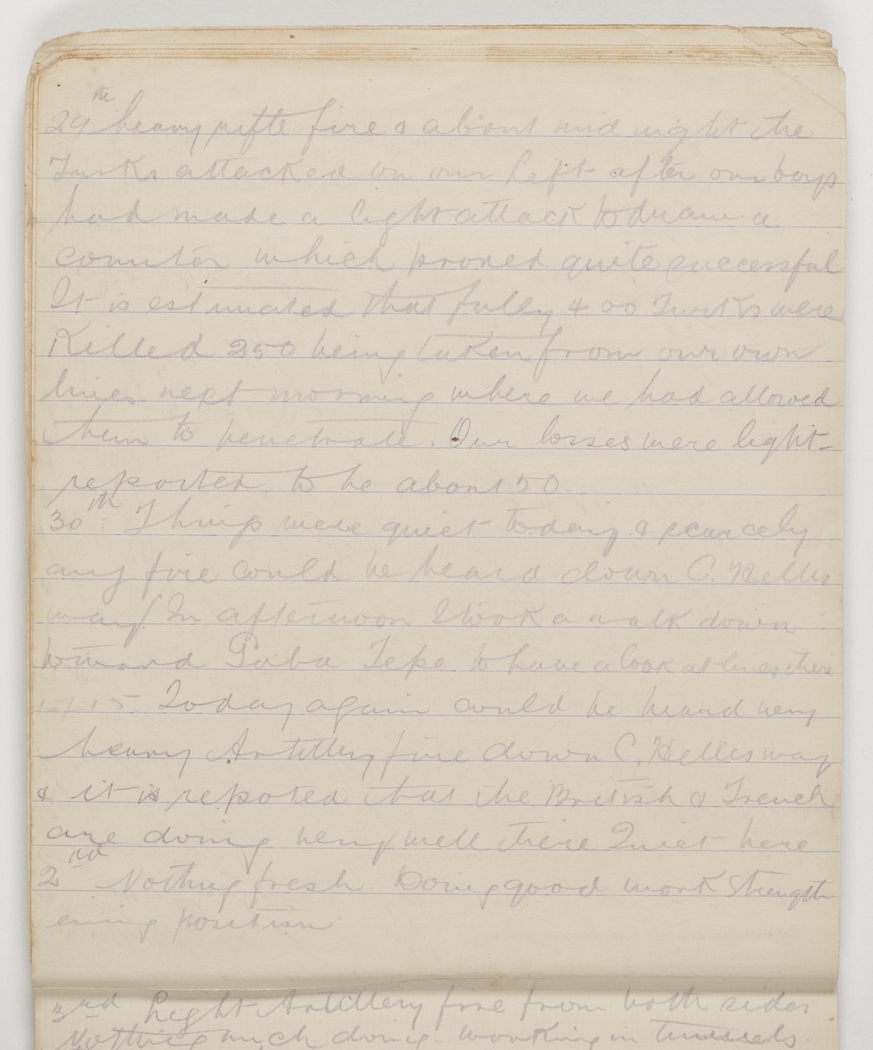 29th heavy rifle fire & about mid night the
Turks attacked on our left after our boys
had made a light attack to draw a
counter which proved quite successful
It is estimated that fully 400 Turks were
Killed 250 being taken from our own
lines next morning where we had allowed
them to penetrate. Our losses were light-
reported to be about 50.
30th Things were quiet today & scarcely
any fire could be heard down C. Helles
way. In afternoon I took a walk down
toward Gaba Tepe to have a look at lines there
1-7-15. Today again could be heard very
heavy Artillery fire down C. Helles way
& it is repoted that the British & French
are doing very well there Quiet here
2nd Nothing fresh. Doing good work strength
ening position
3rd Light Artillery fire from both sides.
Nothing much doing. working in tunnels